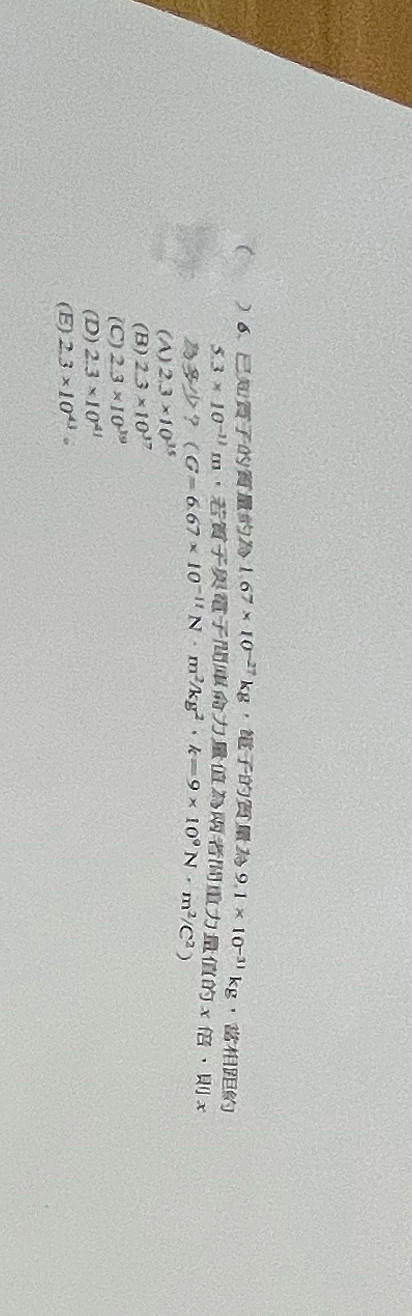 ( ) 6. 已知質子的質量約為 1.67 × 10⁻²⁷ kg，電子的質量為 9.1 × 10⁻³¹ kg，當相距約
5.3 × 10⁻¹¹ m，若質子與電子間庫侖力量值為兩者間重力量值的 x 倍，則 x
為多少？（G＝6.67 × 10⁻¹¹ N．m²/kg²，k＝9 × 10⁹ N．m²/C²）
(A) 2.3 × 10³⁵
(B) 2.3 × 10³⁷
(C) 2.3 × 10³⁹
(D) 2.3 × 10⁴¹
(E) 2.3 × 10⁴³。